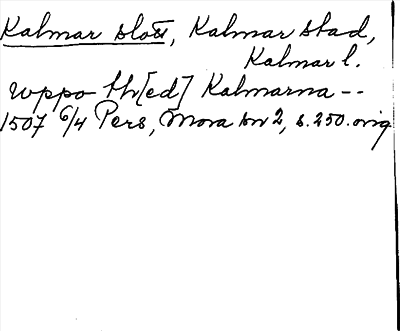 Kalmar slott, Kalmar stad,
Kalmar l.
uppo th[ed] Kalmarna --
1507 6/4 Pers, Mora bn 2, s. 250. orig